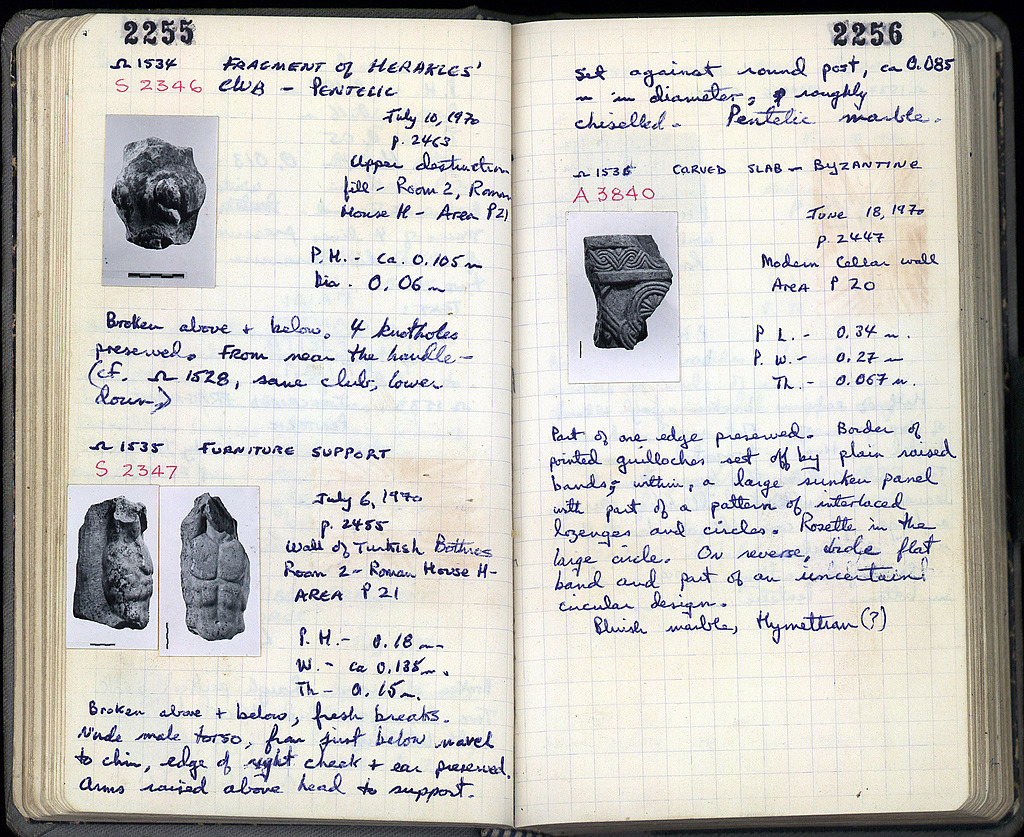 2255
Ω 1534 FRAGMENT of HERAKLES'
S 2346 CLUB – PENTELIC
July 10, 1970
p. 2463
Upper destruction
fill – Room 2, Roman
House H – Area P 21
P.H. – ca. 0.105 m
Dia. 0.06 m
Broken above + below. 4 knotholes
preserved. From near the handle –
(cf. Ω 1528, same club, lower
down)
Ω 1535 FURNITURE SUPPORT
S 2347
July 6, 1970
p. 2455
Wall of Turkish Bothros
Room 2 – Roman House H –
AREA P 21
P.H. – 0.18 m
W. – ca 0.135 m.
Th – 0.15 m.
Broken above + below, fresh breaks.
Nude male torso, from just below navel
to chin, edge of right cheek + ear preserved.
Arms raised above head to support.
2256
set against round post, ca 0.085
m in diameter, roughly
chiselled. Pentelic marble.
Ω 1536 CARVED SLAB – BYZANTINE
A 3840
June 18, 1970
p. 2447
Modern Cellar wall
Area P 20
P L. – 0.34 m.
P. W. – 0.27 m
Th. – 0.067 m.
Part of one edge preserved. Border of
pointed guilloches set off by plain raised
bands; within, a large sunken panel
with part of a pattern of interlaced
lozenges and circles. Rosette in the
large circle. On reverse, wide flat
band and part of an uncertain
circular design.
Bluish marble, Hymettian (?)